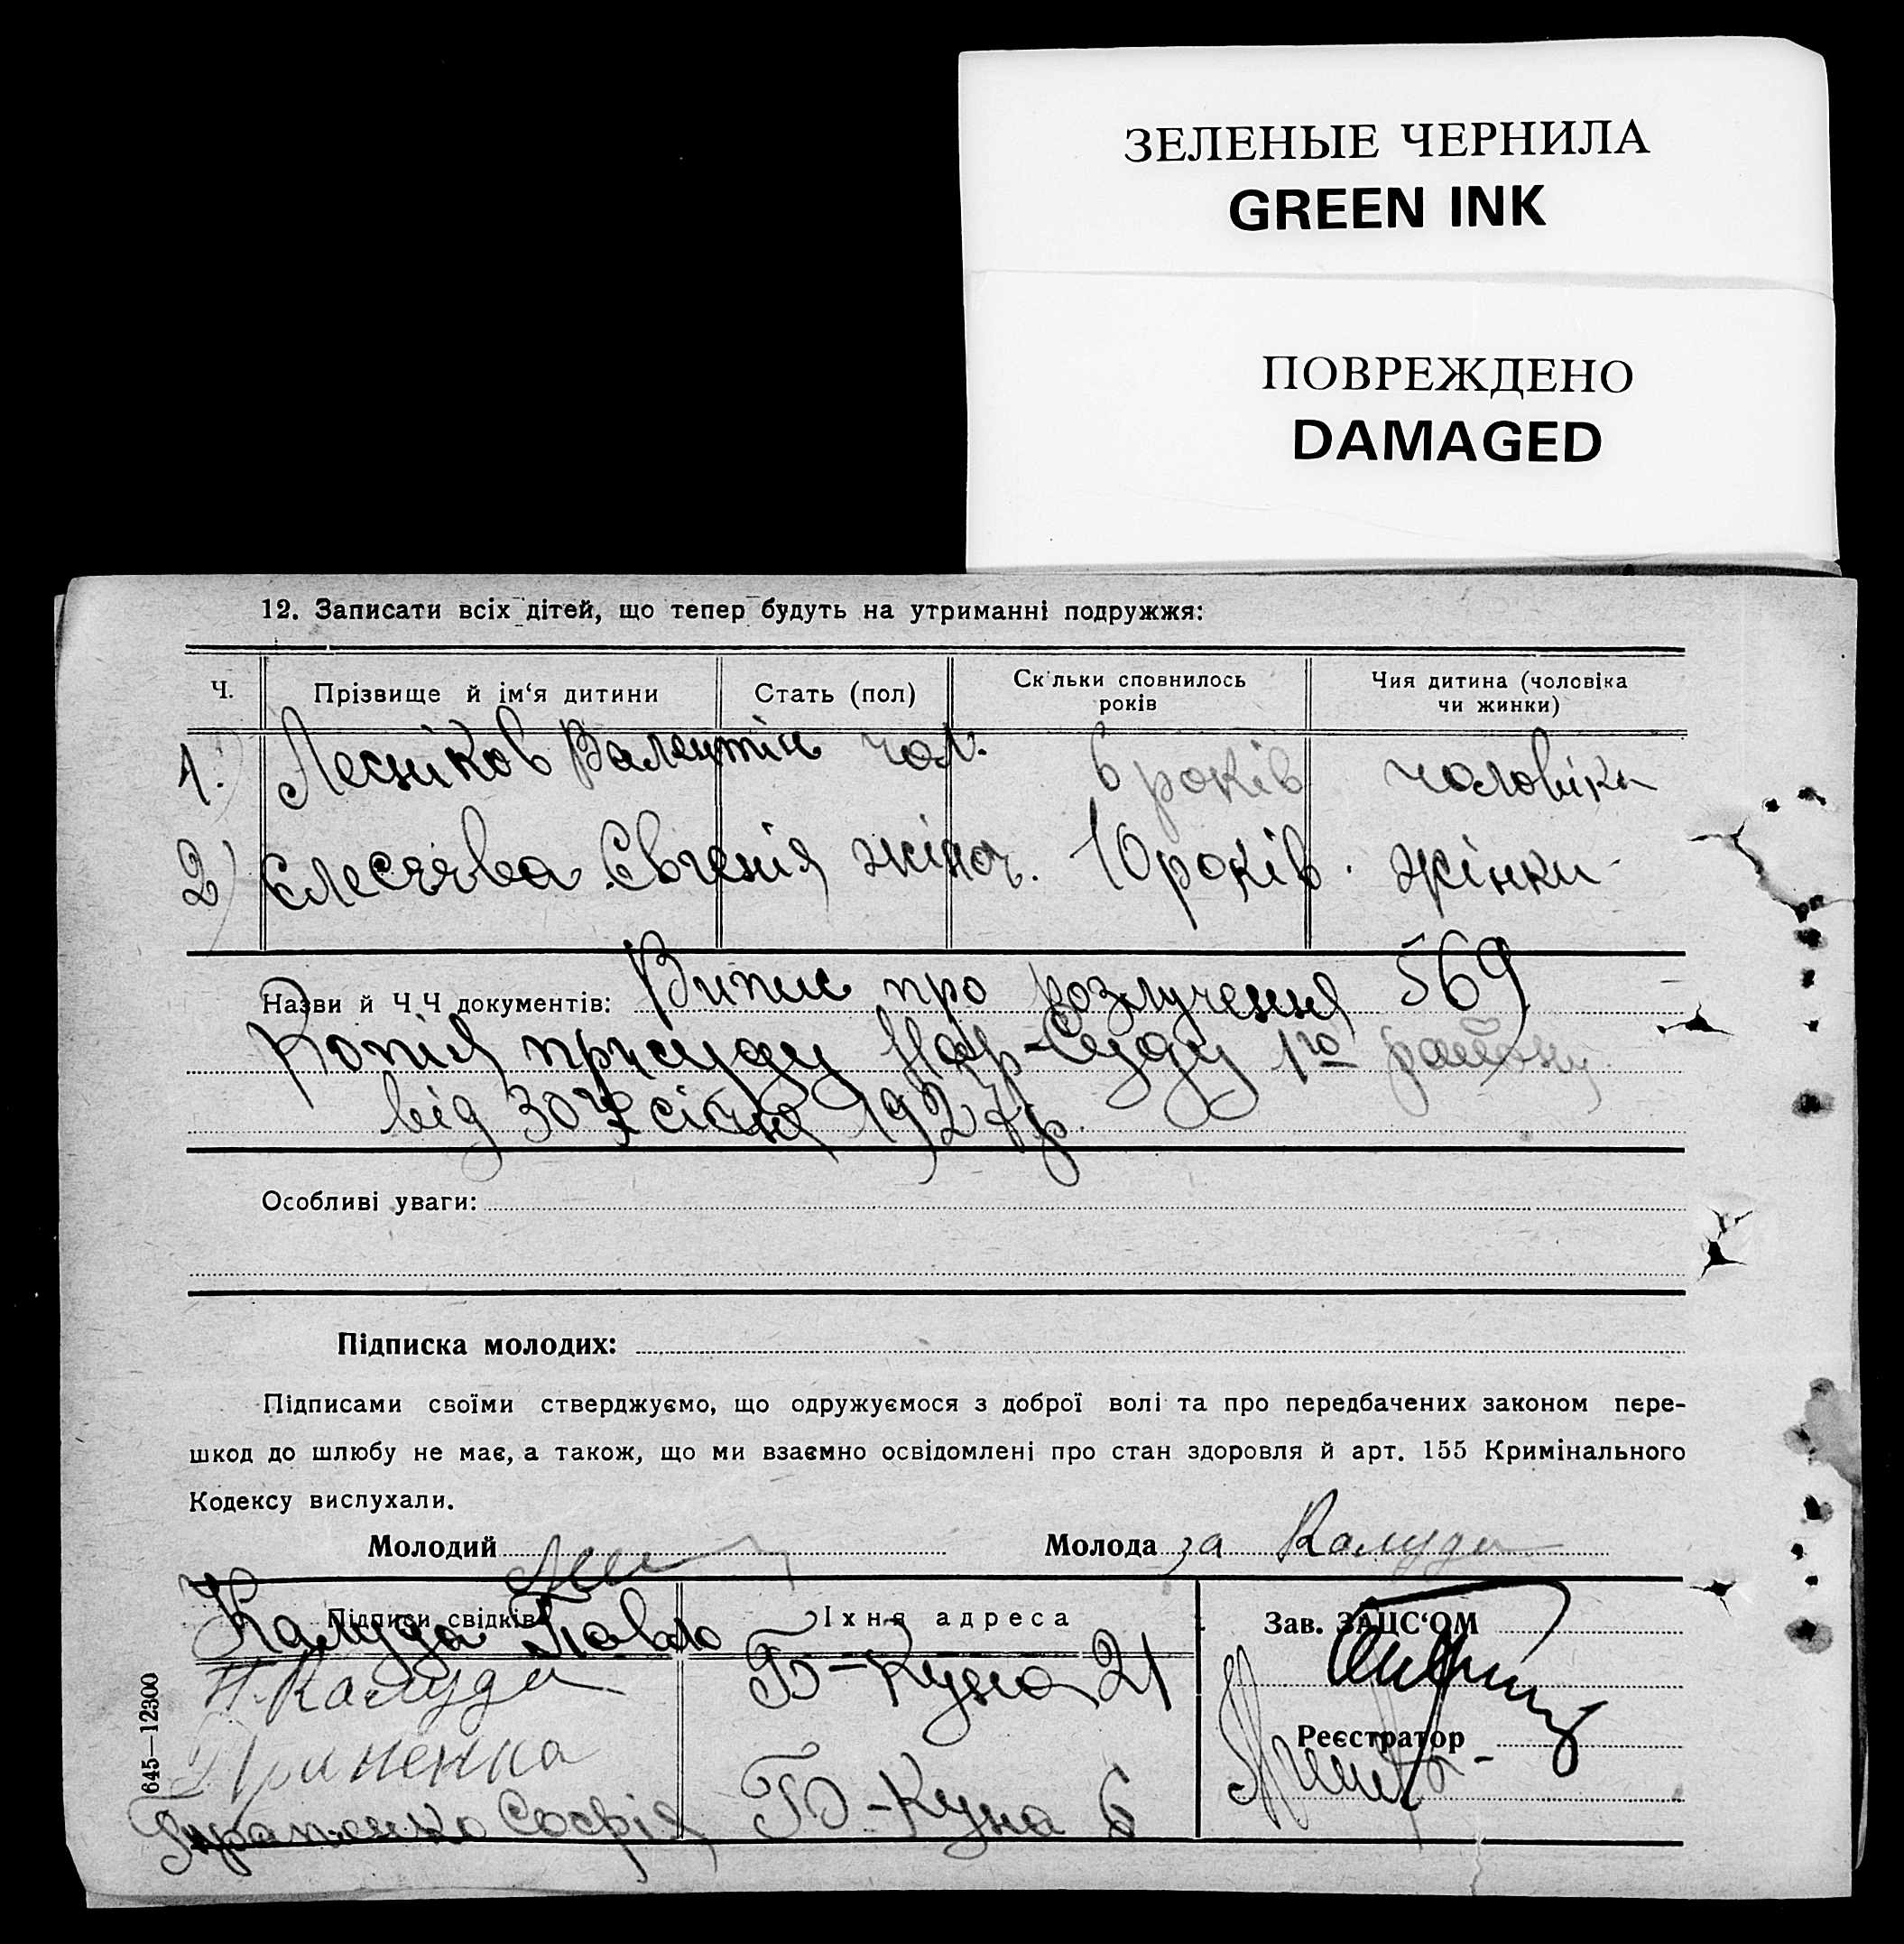 ЗЕЛЕНЫЕ ЧЕРНИЛА
GREEN INK
ПОВРЕЖДЕНО
DAMAGED
12. Записати всіх дітей, що тепер будуть на утриманні подружжя:
Ч. Прізвище й ім‘я дитини Стать (пол) Ск льки сповнилось років Чия дитина (чоловіка чи жинки)
1. Лесніков Валентін чол. 6 років чоловіка
2) Євгенія жіноч. 10 років. жінки
Назви й Ч Ч документів: Випис про розлучення 569
Копія присуду Нар-Суду 1го району
від 30 січня 1927 р.
Особливі уваги:
Підписка молодих:
Підписами своїми стверджуємо, що одружуємося з доброї волі та про передбачених законом пере-
шкод до шлюбу не має, а також, що ми взаємно освідомлені про стан здоровля й арт. 155 Кримінального
Кодексу вислухали.
Молодий Молода за Калуда
Підписи свідків Їхня адреса Зав. ЗАЦС‘ОМ
Калуда Павло
П. Калуда Б-Куна 21
Реєстратор
Софія Б-Куна 6
645—12300